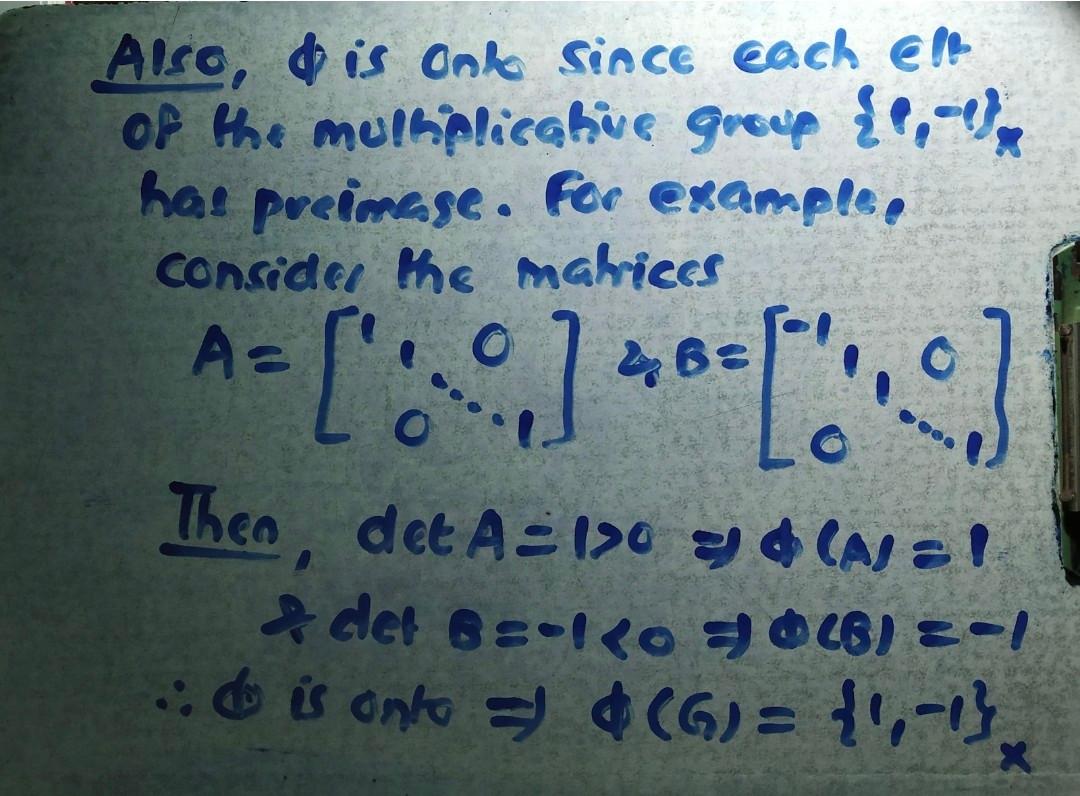 Also, φ is onto since each elt
of the multiplicative group {1,-1}ₓ
has preimage. For example,
consider the matrices
A = [1 1 0 ⋱ 0 1] & B = [-1 1 0 1 ⋱ 0 1]
Then, det A = 1>0 ⇒ φ(A) = 1
& det B = -1<0 ⇒ φ(B) = -1
∴ φ is onto ⇒ φ(G) = {1,-1}ₓ